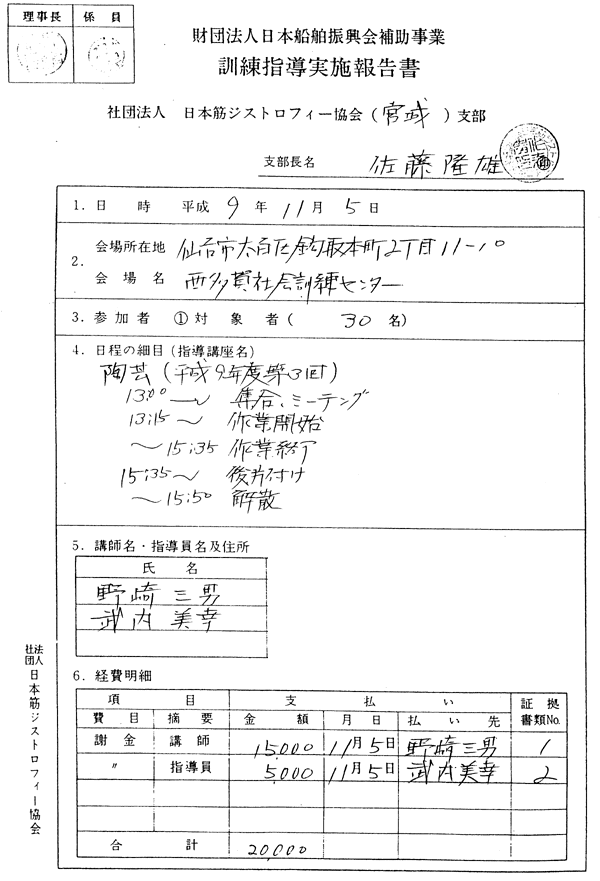 理事長 係員
財団法人日本船舶振興会補助事業
訓練指導実施報告書
社団法人 日本筋ジストロフィー協会(宮城)支部
支部長名 佐藤隆雄
1. 日時 平成 9年 11月 5日
2. 会場所在地 仙台市太白区鈎取本町2丁目11-10
会場名 西多賀社会訓練センター
3. 参加者 ①対象者( 30名)
4. 日程の細目(指導講座名)
陶芸(平成9年度第3回)
13:00 〜 集合、ミーティング
13:15 〜 作業開始
〜15:35 作業終了
15:35〜 後片付け
〜15:50 解散
5. 講師名・指導員名及住所
氏名
野崎 三男
武内 美幸
6. 経費明細
項目 支払い 証拠書類No.
費目 摘要 金額 月日 払い先
謝金 講師 15,000 11月5日 野崎三男 1
〃 指導員 5,000 11月5日 武内美幸 2
合計 20,000
社団法人 日本筋ジストロフィー協会